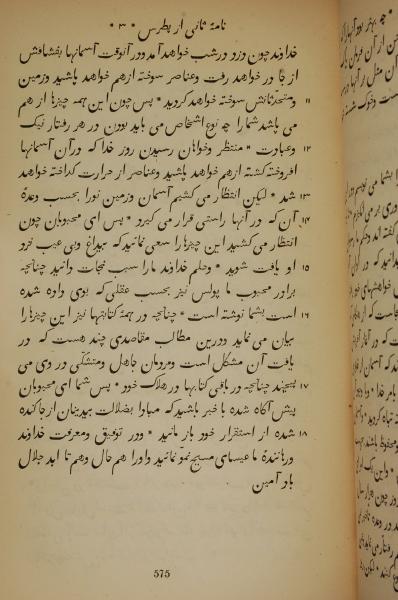 نامهٔ ثانی از پطرس * ۳ *
خداوند چون دزد درشب خواهد آمد ودر آنوقت آسمانها بفشافش
از جا در خواهد رفت وعناصر سوخته ازهم خواهد پاشید وزمین
۱۱ ومتحدثاتش سوخته خواهد کردید * پس چون این همه چیزها از هم
می پاشد شمارا چه نوع اشخاص می باید بودن در هر رفتار نیک
۱۲ وعبادت * منتظر وخواهان رسیدن روز خدا که درآن آسمانها
افروخته کشته ازهم خواهد پاشید وعناصر از حرارت کداخته خواهد
۱۳ شد * لیکن انتظار می کشیم آسمان وزمین نورا بحسب وعدهٔ
۱۴ آن که در آنها راستی قرار می کیرد * پس ای محبوبان چون
انتظار می کشید این چیزهارا سعی نمائید که بیداغ وبی عیب نزد
۱۵ او یافت شوید * وحلم خداوند مارا سبب نجات دانید چنانچه
برادر محبوب ما پولس نیز بحسب عقلی که بوی داده شده
۱۶ است بشما نوشته است * چنانچه در همهٔ کتابتها نیز این چیزهارا
بیان می نماید ودرین مطالب مقاصدی چند هست که در
یافت آن مشکل است ومردمان جاهل ومتشکی در وی می
۱۷ پیچند چنانچه در باقی کتابها در هلاک خود * پس شما ای محبوبان
پیش آکاه شده با خبر باشید که مبادا بضلالت بیدینان از جا کنده
۱۸ شده از استقرار خود باز مانید * ودر توفیق ومعرفت خداوند
ورهانندهٔ ما عیسای مسیح نمو نمائید واورا هم حال وهم تا ابد جلال
باد آمین
575